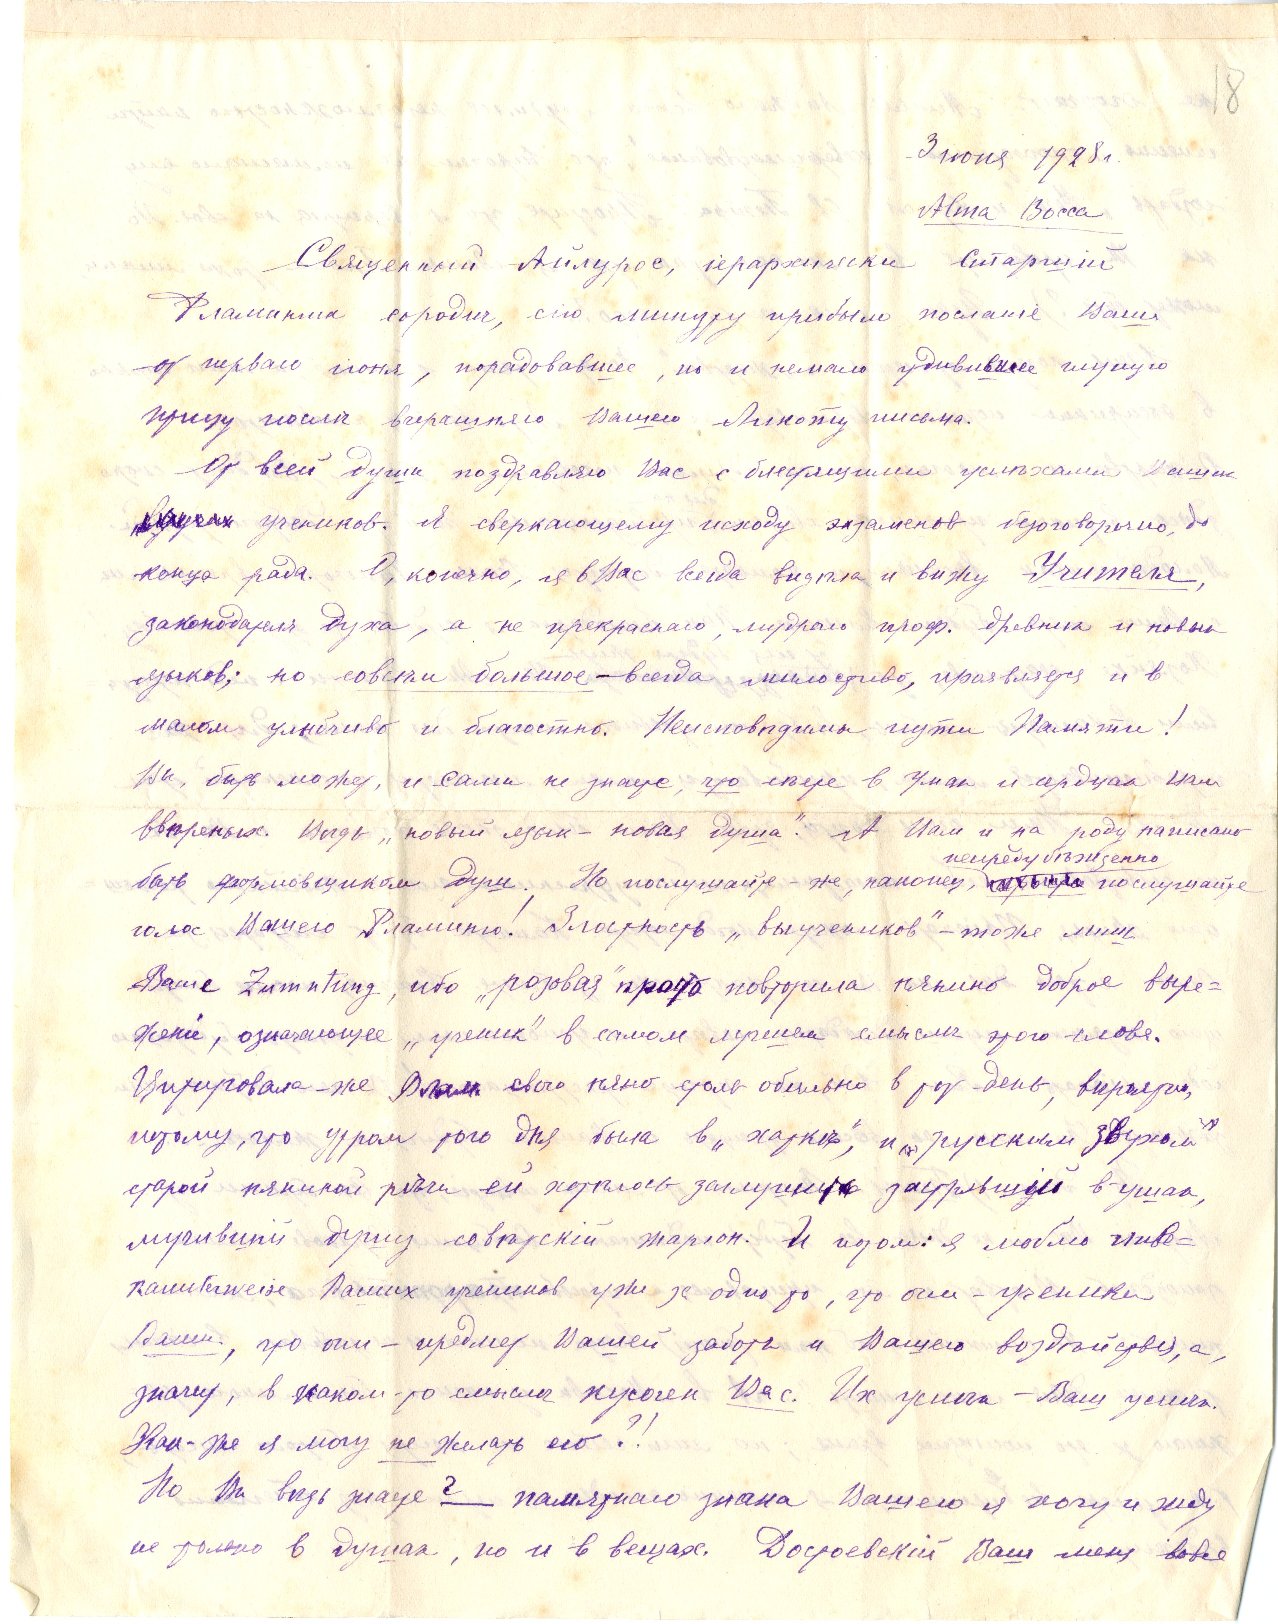 18
3 июня 1928 г.
Alma Bocca
Священный Айлурос, іерархически Старшій
Фламинги сородич, сію минуту прибыло посланіе Ваше
от перваго іюня, порадовавшее, но и немало удивившее глупую
птицу послѣ вчерашняго Вашего письма.
От всей души поздравляю Вас с блестящими успѣхами Ваших
учеников. Я сверкающему исходу экзаменов безоговорочно, до
конца рада. О, конечно, я в Вас всегда видѣла и вижу Учителя,
законодателя духа, а не прекраснаго, мудраго проф. древних и новых
языков; но совсѣм большое – всегда милостиво, проявляется и в
малом улыбчиво и благостно. Неисповѣдимы пути Памяти!
Вы, быть может, и сами не знаете, что сѣете в умах и сердцах Вам
ввѣренных. Вѣдь „новый язык – новая душа“. А Вам и на роду написано
быть формовщиком душ. Но послушайте-же, наконец, непредубѣжденно послушайте
голос Вашего Фламинго! Злостность „выучеников“ – тоже лишь
Ваше Zumutung, ибо „розовая“ просто повторила нянино доброе выра=
женіе, означающее „ученик“ в самом лучшем смыслѣ этого слова.
Цитировала-же Флам. свою няню столь обильно в тот день, вѣроятно,
потому, что утром того дня была в и „русским духом“
старой няниной рѣчи ей хотѣлось заглушить застрявшій в ушах,
мучившій душу совѣтскій жаргон. И потом: я люблю
Ваших учеников уже за одно то, что они – ученики
Ваши, что они – предмет Вашей заботы и Вашего воздѣйствія, а,
значит, в каком-то смыслѣ кусочек Вас. Их успѣх – Ваш успѣх.
Как-же я могу не желать его?!
Но Вы вѣдь знаете? – памятнаго знака Вашего я хочу и жду
не только в душах, но и в вещах. Достоевскій Ваш меня вовсе